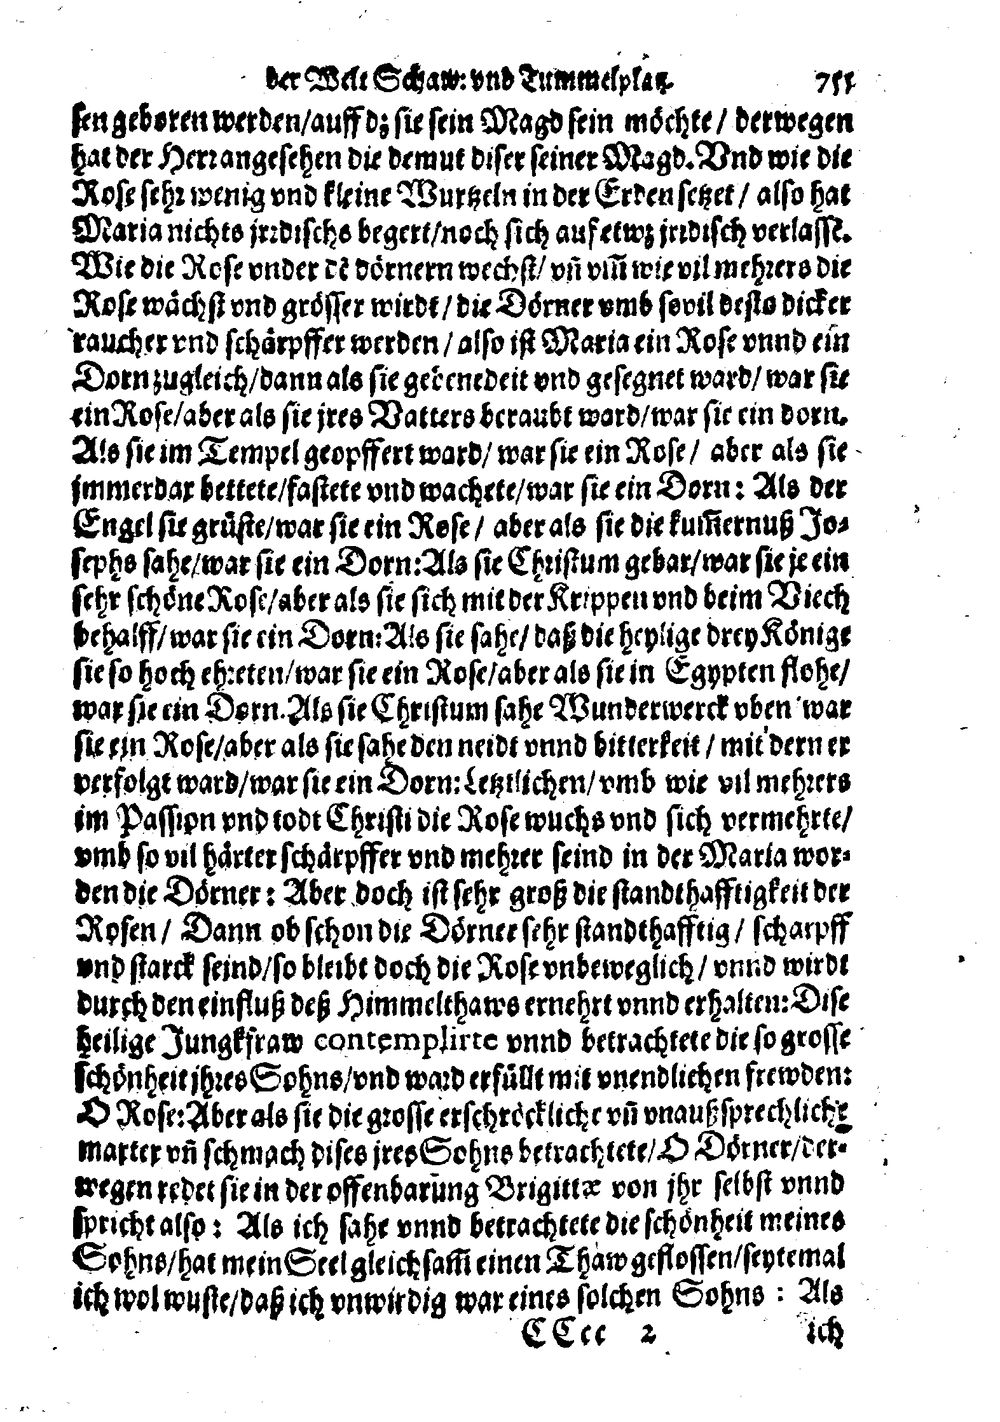 der Welt Schaw: vnd Tummelplatz. 755
sen geboren werden/auff dz sie sein Magd sein möchte/ derwegen
hat der Herr angesehen die demut diser seiner Magd. Vnd wie die
Rose sehr wenig vnd kleine Wurtzeln in der Erden setzet/ also hat
Maria nichts jrrdischs begert/noch sich auf etwz jrrdisch verlasst.
Wie die Rose vnder dē dörnern wechst/ vn̄ vm̄ wie vil mehrers die
Rose wächst vnd grösser wirdt/ die Dörner vmb sovil desto dicker
raucher vnd schärpffer werden/ also ist Maria ein Rose vnnd ein
Dorn zugleich/dann als sie gebenedeit vnd gesegnet ward/ war sie
ein Rose/aber als sie jres Vatters beraubt ward/war sie ein dorn.
Als sie im Tempel geopffert ward/ war sie ein Rose/ aber als sie
jmmerdar bettete/fastete vnd wachete/war sie ein Dorn: Als der
Engel sie grüste/war sie ein Rose/ aber als sie die kum̄ernuß Jo-
sephs sahe/war sie ein Dorn: Als sie Christum gebar/war sie je ein
sehr schöne Rose/aber als sie sich mit der Krippen vnd beim Viech
behalff/war sie ein Dorn: Als sie sahe/ daß die heylige drey Könige
sie so hoch ehreten/war sie ein Rose/aber als sie in Egypten flohe/
war sie ein Dorn. Als sie Christum sahe Wunderwerck vben war
sie ein Rose/aber als sie sahe den neidt vnnd bitterkeit/ mit dern er
verfolgt ward/war sie ein Dorn: Letztlichen/ vmb wie vil mehrers
im Passion vnd todt Christi die Rose wuchs vnd sich vermehrte/
vmb so vil härter schärpffer vnd mehrer seind in der Maria wor-
den die Dörner: Aber doch ist sehr groß die standthafftigkeit der
Rosen/ Dann ob schon die Dörner sehr standthafftig/ scharpff
vnd starck seind/so bleibt doch die Rose vnbeweglich/ vnnd wirdt
durch den einfluß deß Himmelthaws ernehrt vnnd erhalten: Dise
heilige Jungkfraw contemplirte vnnd betrachtete die so grosse
schönheit jhres Sohns/vnd ward erfüllt mit vnendlichen frewden:
O Rose: Aber als sie die grosse erschröckliche vn̄ vnaußsprechliche
marter vn̄ schmach dises jres Sohns betrachtete/ O Dörner/ der-
wegen redet sie in der offenbarung Brigittæ von jhr selbst vnnd
spricht also: Als ich sahe vnnd betrachtete die schönheit meines
Sohns/hat mein Seel gleichsam̄ einen Thaw geflossen/seytemal
ich wol wuste/daß ich vnwirdig war eines solchen Sohns: Als
CCcc 2 ich